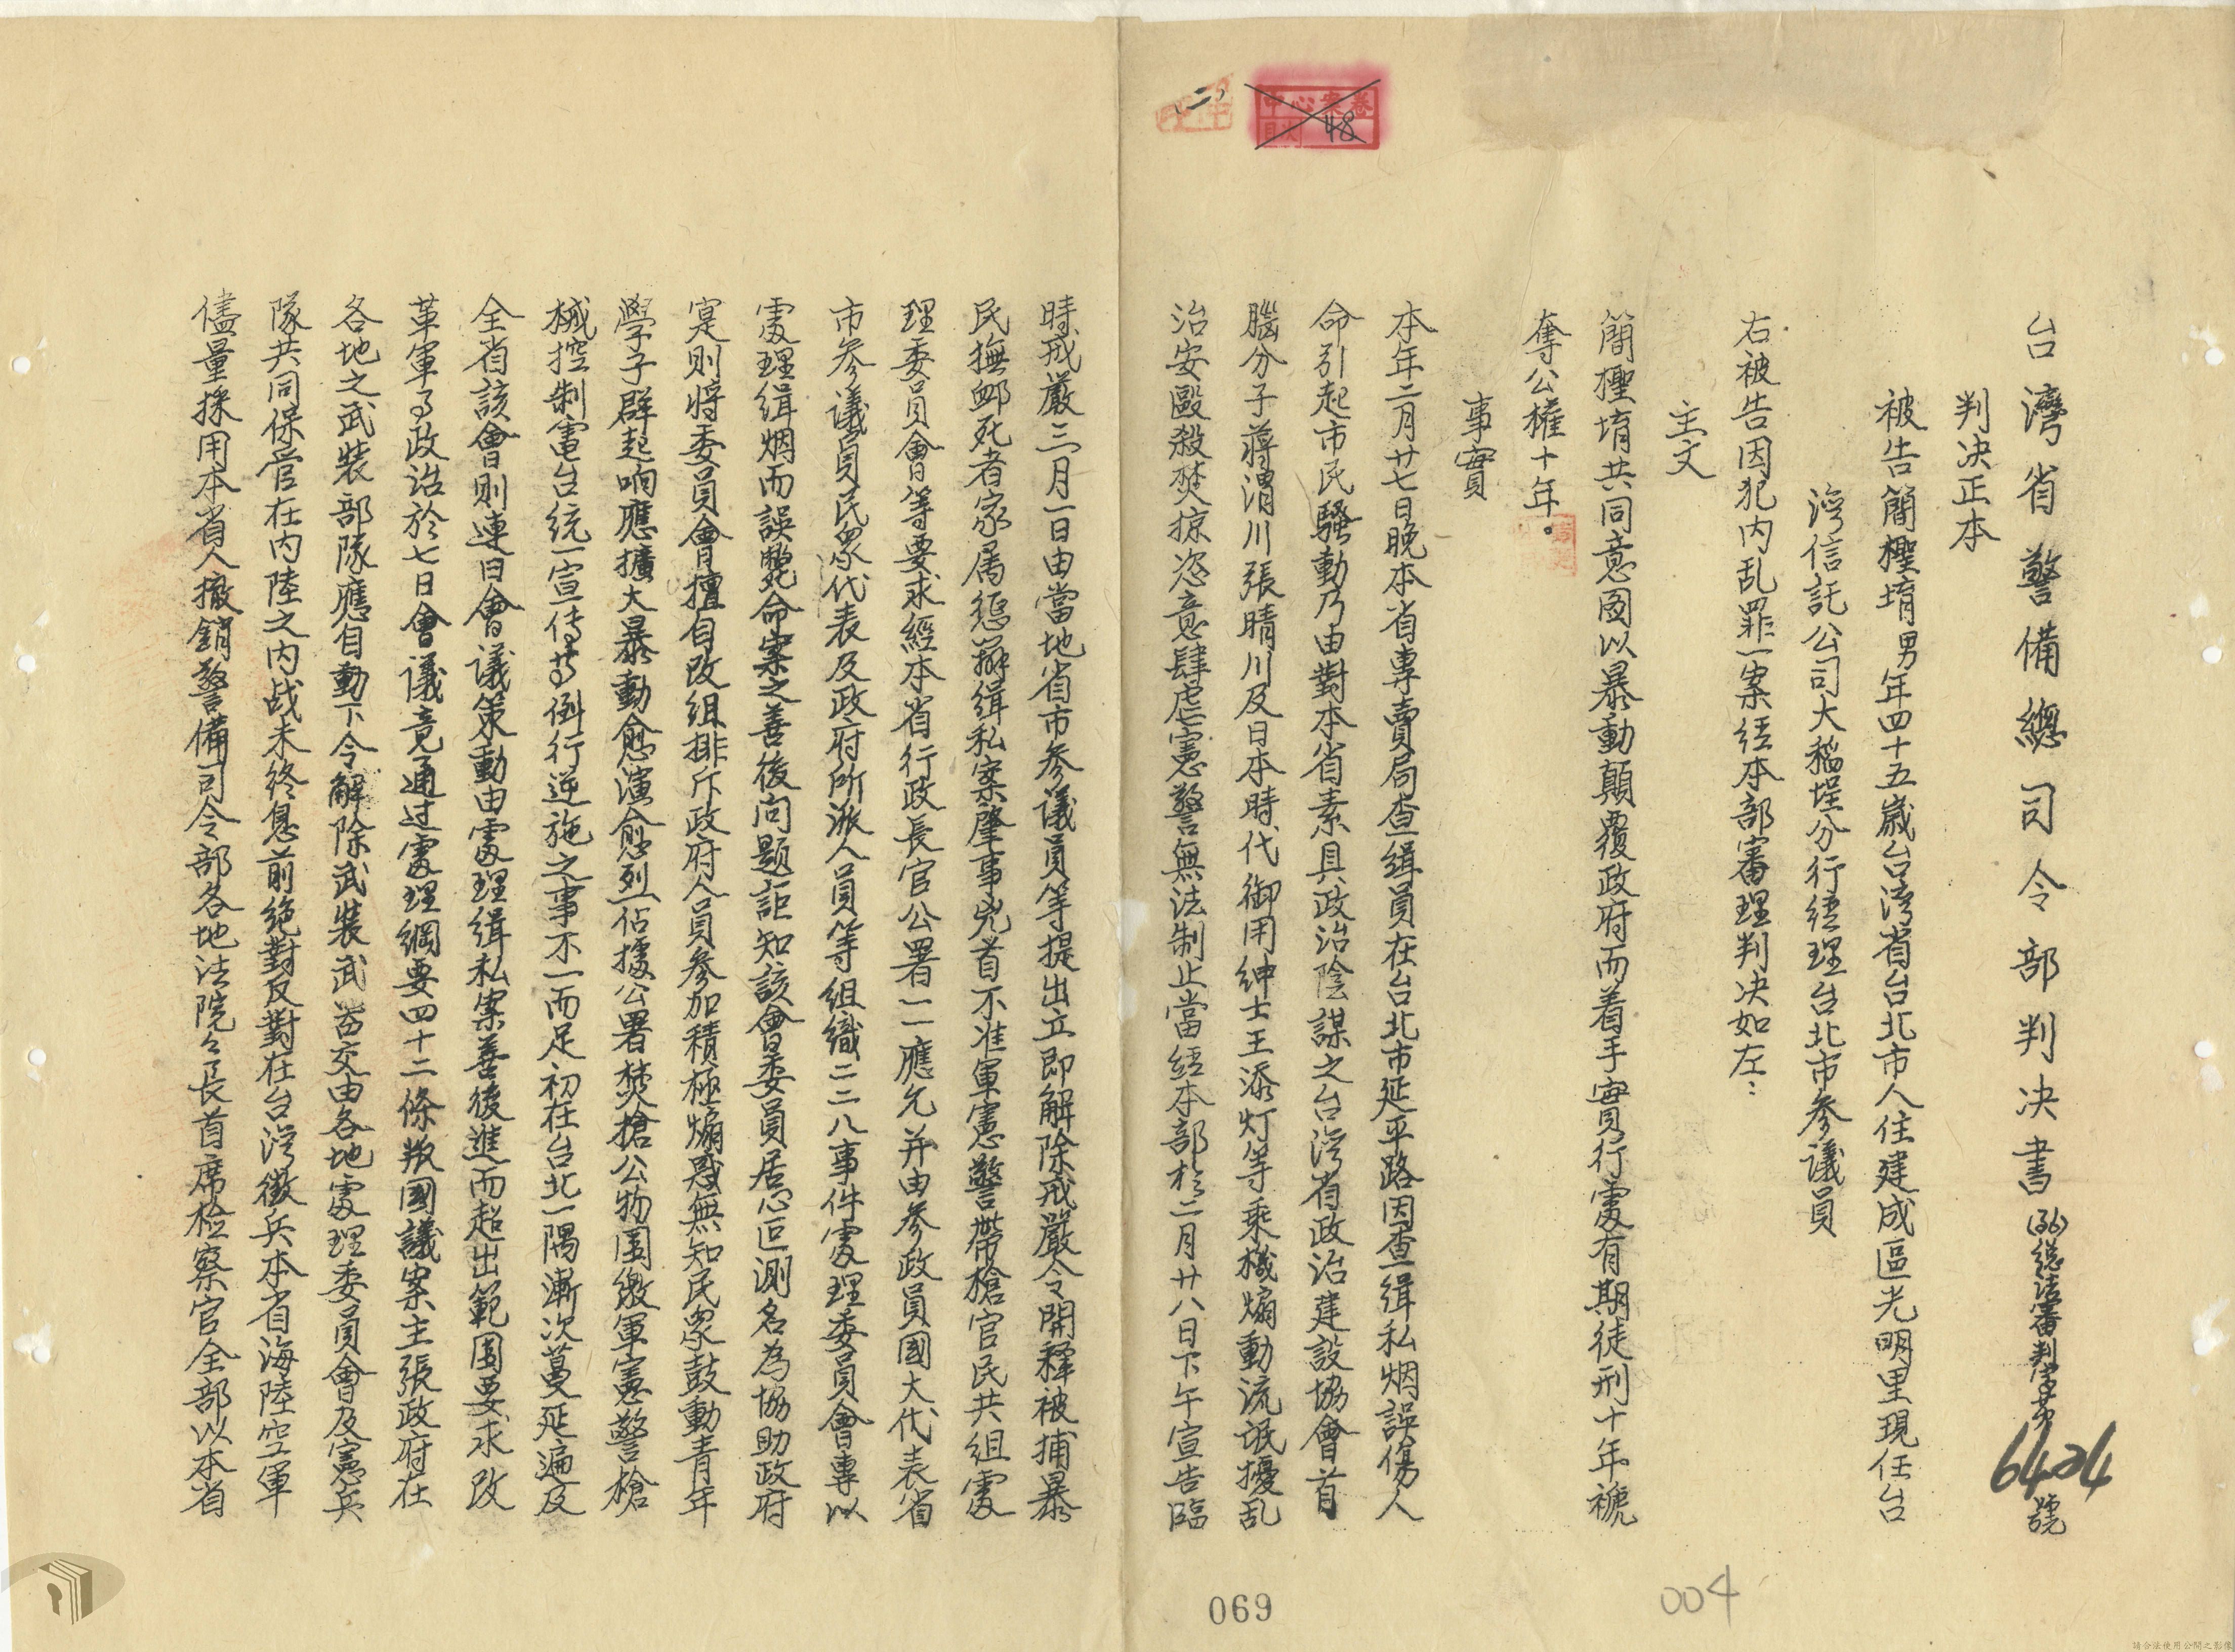 台灣省警備總司令部判决書(36)總法審判字第6404號
判決正本
被告簡檉堉男年四十五歲台湾省台北市人住建成區光明里現任台
湾信託公司大稻埕分行経理台北市参議員
右被告因犯内乱罪一案経本部審理判决如左：
主文
簡檉堉共同意圖以暴動顛覆政府而着手實行處有期徒刑十年褫
奪公權十年。
事實
本年二月廿七日晚本省專賣局查緝員在台北市延平路因查緝私烟誤傷人
命引起市民騷動乃由對本省素具政治陰謀之台湾省政治建設協會首
腦分子蔣渭川張晴川及日本時代御用紳士王添灯等乘機煽動流氓擾乱
治安毆殺焚掠恣意肆虐憲警無法制止當経本部於二月廿八日下午宣告臨
時戒嚴三月一日由當地省市参議員等提出立即解除戒嚴令開釋被捕暴
民撫卹死者家属惩辦緝私案肇事兇首不准軍憲警帶槍官民共組處
理委員會等要求經本省行政長官公署一一應允并由参政員國大代表省
市参議員民眾代表及政府所派人員等組織二二八事件處理委員會專以
處理緝烟而誤斃命案之善後问题詎知該會委員居心叵測名為協助政府
寔則將委員會擅自改組排斥政府人員参加積極煽惑無知民眾鼓動青年
學子群起响應擴大暴動愈演愈烈佔據公署焚搶公物圍繳軍憲警槍
械控制電台統一宣传等倒行逆施之事不一而足初在台北一隅漸次蔓延遍及
全省該會則連日會議策動由處理緝私案善後進而超出範圍要求改
革軍事政治於七日會議竟通过處理綱要四十二條叛國議案主張政府在
各地之武裝部隊應自動下令解除武裝武器交由各地處理委員會及憲兵
隊共同保管在内陸之内战未終息前絶對反對在台湾徵兵本省海陸空軍
儘量採用本省人撤銷警備司令部各地法院々長首席检察官全部以本省
中心案卷
目次 48
(二)
069
004
請合法使用公開之影像